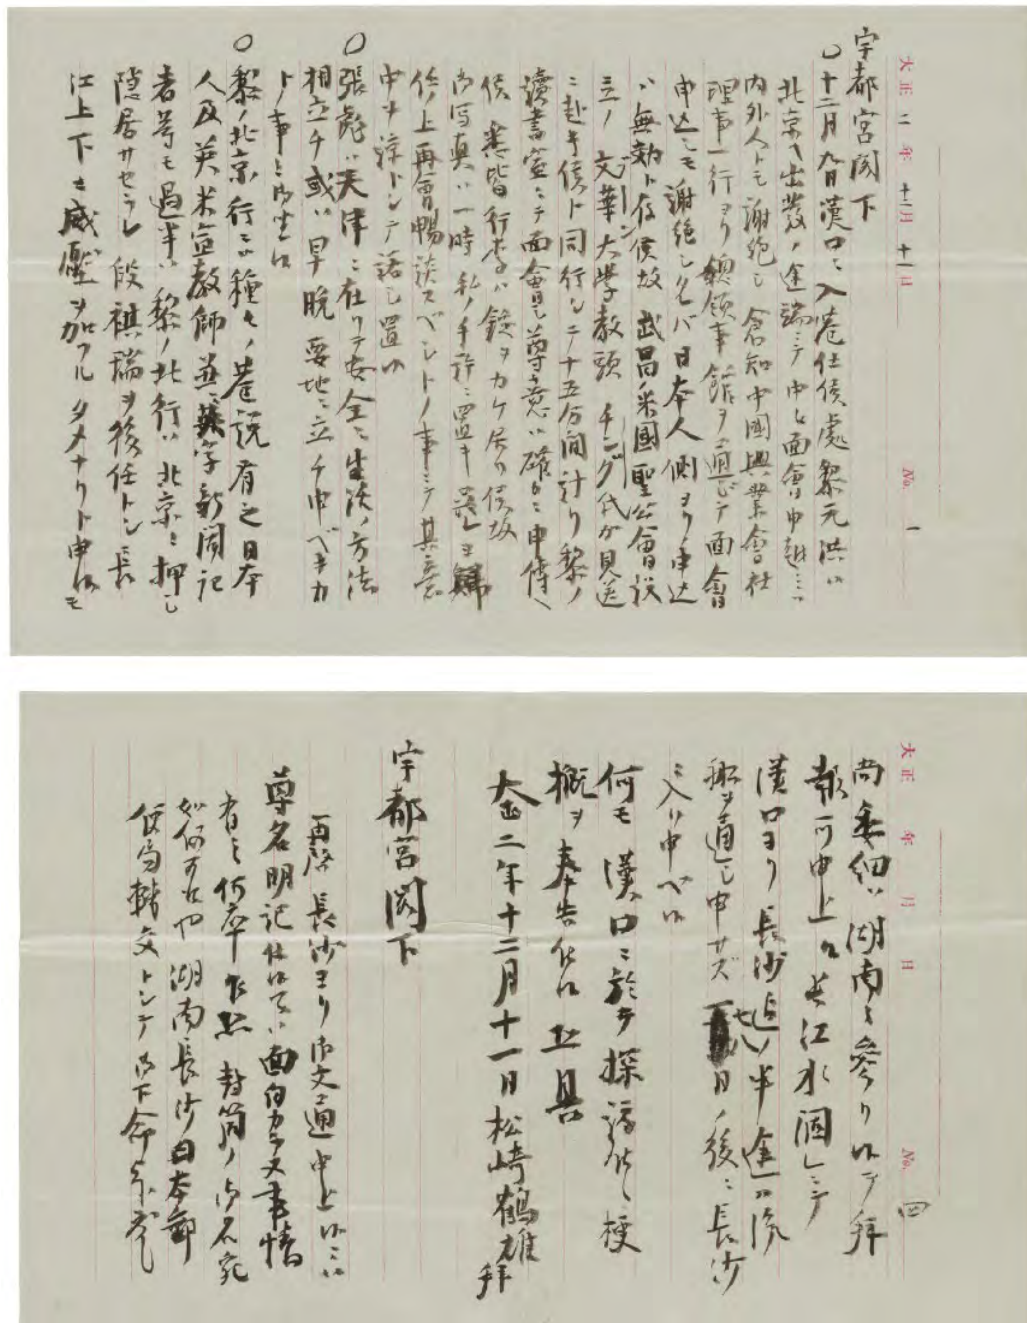 大正二年十二月十一日
No. 一
宇都宮閣下
○十二月九日漢口ニ入港仕候處黎元洪ハ
北京ヘ出發ノ途端ニテ中々面會ハ申越ニハ
内外人トモ謝絶シ倉知中國興業會社
理事一行ヨリ總領事館ヲ通ジテ面會
申込シモ謝絶シタレバ日本人側ヨリ申込
ハ無効ト存候故武昌米國聖公會設
立ノ文華大學教頭
ニ赴キ候ト同行シテ十五分間計リ黎ノ
讀書室ニテ面會シ尊意ハ確カニ申傳ヘ
候
御写真ハ一時私ノ手許ニ置キ
任ノ上再會暢談スベシトノ事ニテ其意
中ヲ諒トシテ話シ置
○張彪ハ天津ニ在リテ安全ニ生活ノ方法
相立チ或ハ早晩要地ニ立チ申ベキカ
トノ事ニ御坐候
○黎ノ北京行ニハ種々ノ巷説有之日本
人及英米宣教師並ニ英字新聞記
者等モ過半ハ黎ノ北行ハ北京ニ押シ
隠居サセラレ段祺瑞ヲ後任トシ長
江上下ニ威壓ヲ加フルタメナリト申候モ
大正 年 月 日
No. 四
尚委細ハ湖南ニ參リ候テ拜
報可申上候長江水涸レシテ
漢口ヨリ長沙迄ノ半途ハ汽
船ヲ通シ申サズ 日ノ後ニ長沙
ニ入リ申ベク候
何モ漢口ニ於テ探訪仕候梗
概ヲ奉告仕候
大正二年十二月十一日松崎鶴雄拜
宇都宮閣下
再啓長沙ヨリ御文通申上候ニハ
尊名明記仕候テハ面白カラヌ事情
有之何卒 封筒ノ御名宛
如何可然也湖南長沙日本郵
便局 トシテ御下命